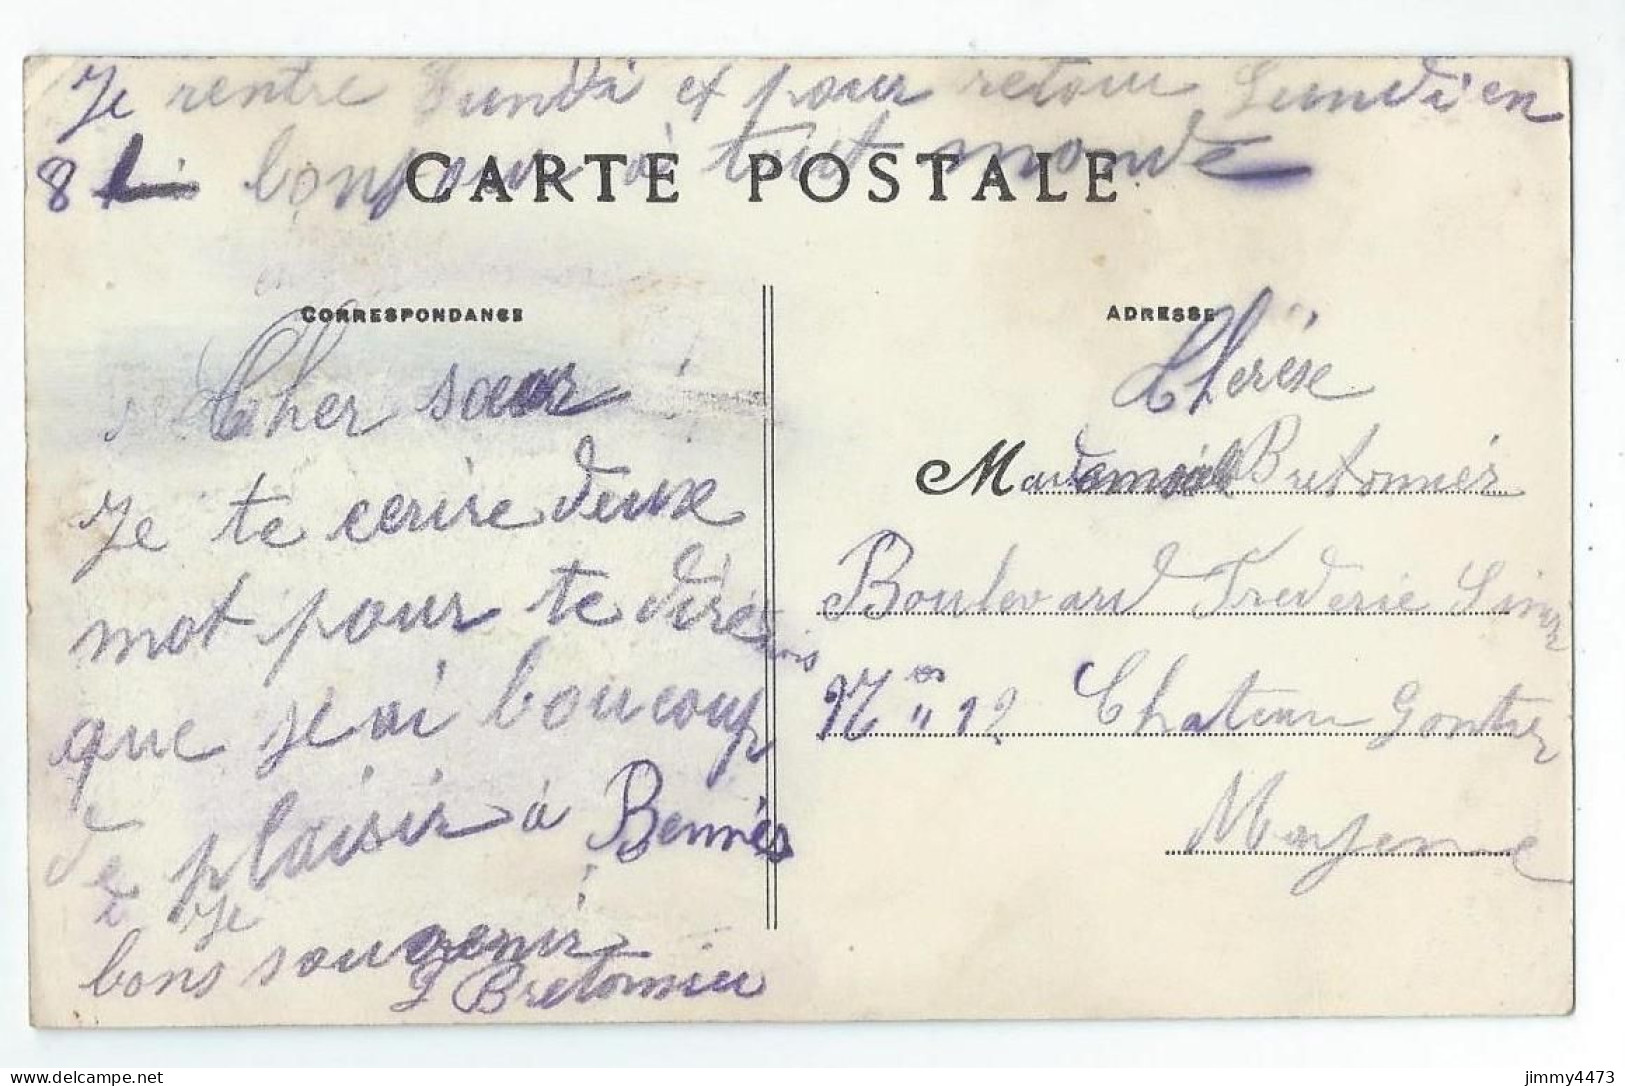 Je rentre Lundi et pour retour Lundi en
8 bonjour à tout monde
CARTE POSTALE
CORRESPONDANCE
Cher sœur
Je te ecrire deux
mot pour te dire
que je ai boucoup
de plaisir à Bennes
Je
bons souvenir
L Bretonnier
ADRESSE
Therése
Mademoisel Bretonnier
Boulevard Frederic
N os " 12 Chateau Gontier
Mayenne
jimmy4473